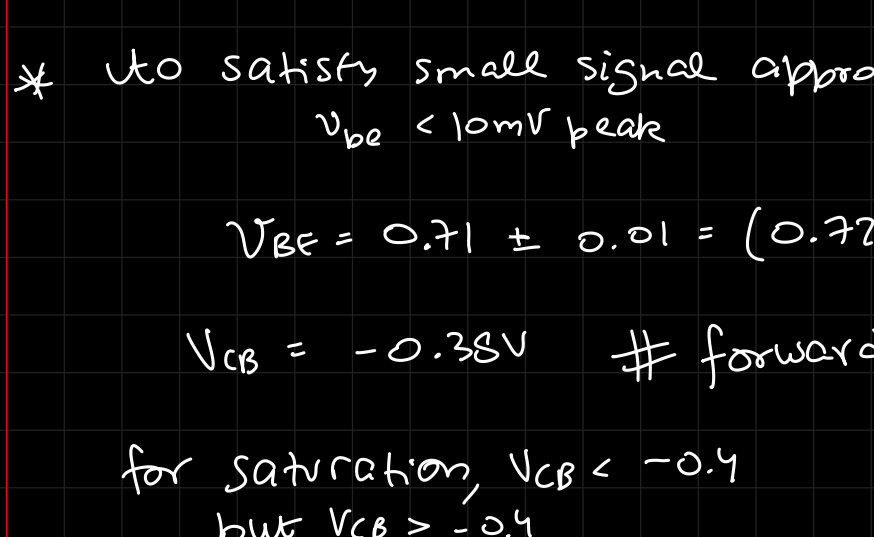 * to satisfy small signal appro
v_be < 10mV peak
V_BE = 0.71 ± 0.01 = (0.72
V_CB = -0.38V # forward
for saturation, V_CB < -0.4
but V_CB > -0.4